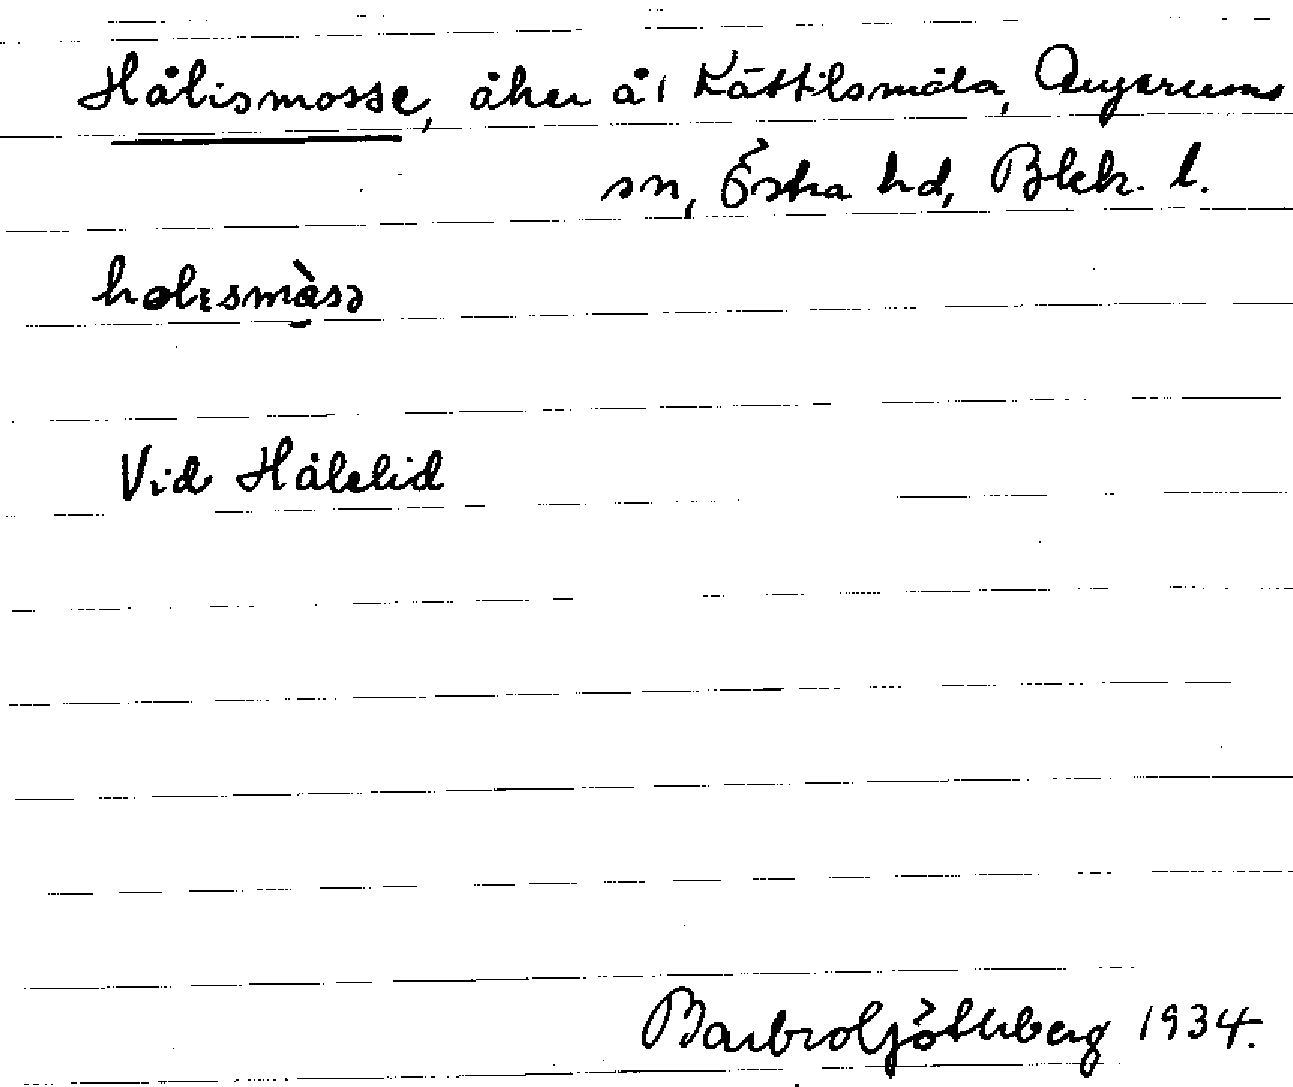 Hålismosse, åker å 1 Kättilsmåla, Augerums
sn, Östra hd, Blek. l.
holɪsmὰsə
Vid Hålelid
Barbro Götherberg 1934.